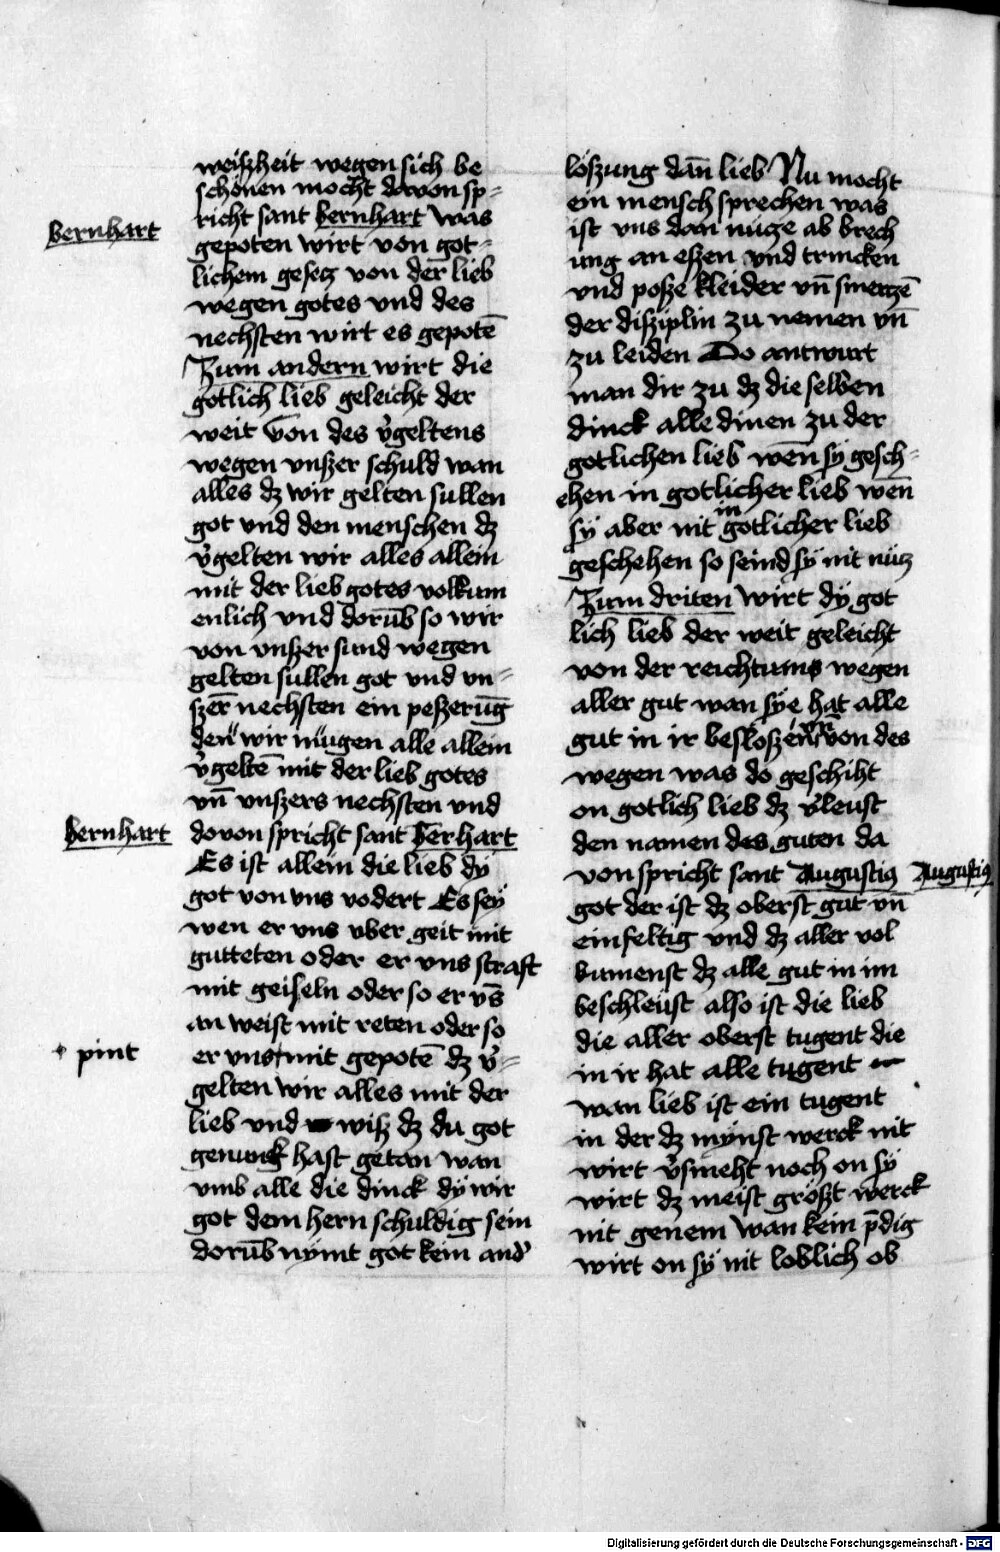 weiszheit wegen sich be
schonen mocht dovon sp-
richt sant bernhart was
bernhart
gepoten wirt von got-
lichem gesetz von der lieb
wegen gotes vnd des
nechsten wirt es gepotē
Zum andern wirt die
gotlich lieb geleicht der
weit von des v̉geltens
wegen vnszer schuld wan
alles dz wir gelten sullen
got vnd den menschen dz
v̉gelten wir alles allein
mit der lieb gotes volkum
enlich vnd dorūb so wir
von vnszer sund wegen
gelten sullen got vnd vn-
szer̄ nechsten ein peszerūg
den wir mügen alle allein
v̉geltē mit der lieb gotes
vn̄ vnszers nechsten vnd
dovon spricht sant berhart
bernhart
Es ist allein die lieb dy
got von vns vodert Es sey
wen er vns vber geit mit
gutteten oder er vns straft
mit geiseln oder so er vs̄
an weist mit reten oder so
er vns + mit gepotē dz v̉-
+ pint
gelten wir alles mit der
lieb vnd wisz dz du got
genunk hast getan wan
vmb alle die dinck dy wir
got dem hern schuldig sein
dorūb nymt got kein and̉
löszung dan̄ lieb Nu mocht
ein mensch sprechen was
ist vns dan nücze ab brech
ung an eszen vnd trincken
vnd posze kleider vn̄ smerczē
der disziplin zu nemen vn̄
zu leiden Do antwurt
man dir zu dz die selben
dinck alle dinen zu der
gotlichen lieb wen̄ sy gesch-
ehen in gotlicher lieb wen̄
sy aber nit in gotlicher lieb
geschehen so seind sy nit nücz
Zum driten wirt dy got
lich lieb der weit geleicht
von der reichtums wegen
aller gut wan sye hat alle
gut in ir besloszen vn̄ von des
wegen was do geschiht
on gotlich lieb dz v̉leust
den namen des guten da
von spricht sant Augustiꝯ
Augustiꝯ
got der ist dz oberst gut vn̄
einfeltig vnd dz aller vol
kumenst dz alle gut in im
beschleust also ist die lieb
die aller oberst tugent die
in ir hat alle tugent
wan lieb ist ein tugent
in der dz mynst werck nit
wirt v̉smeht noch on sy
wirt dz meist gröszt werck
nit genem wan kein p̄dig
wirt on sy nit loblich ob
Digitalisierung gefördert durch die Deutsche Forschungsgemeinschaft - DFG